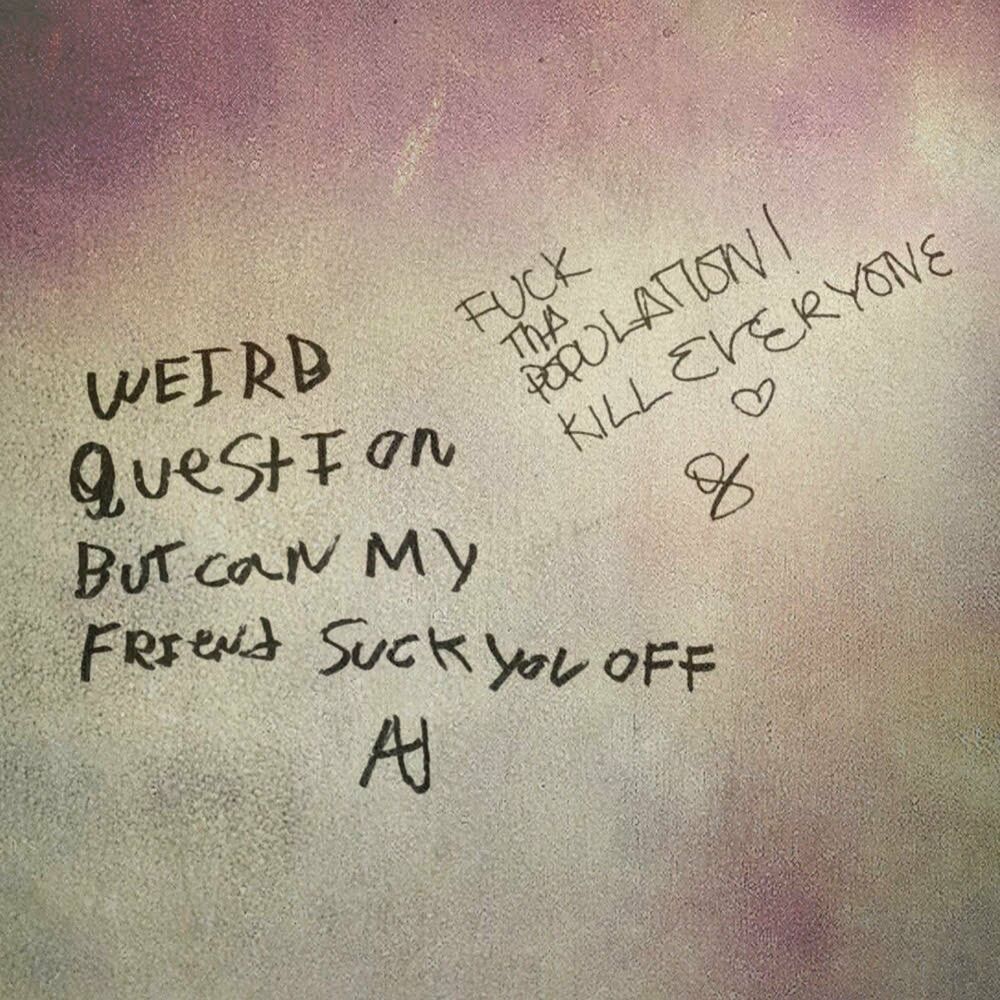 WEIRD
QuestIon
BUT caN MY
FRIend Suck you OFF
AJ
FUCK
THA
POPULATION!
KILL EVERYONE
♡